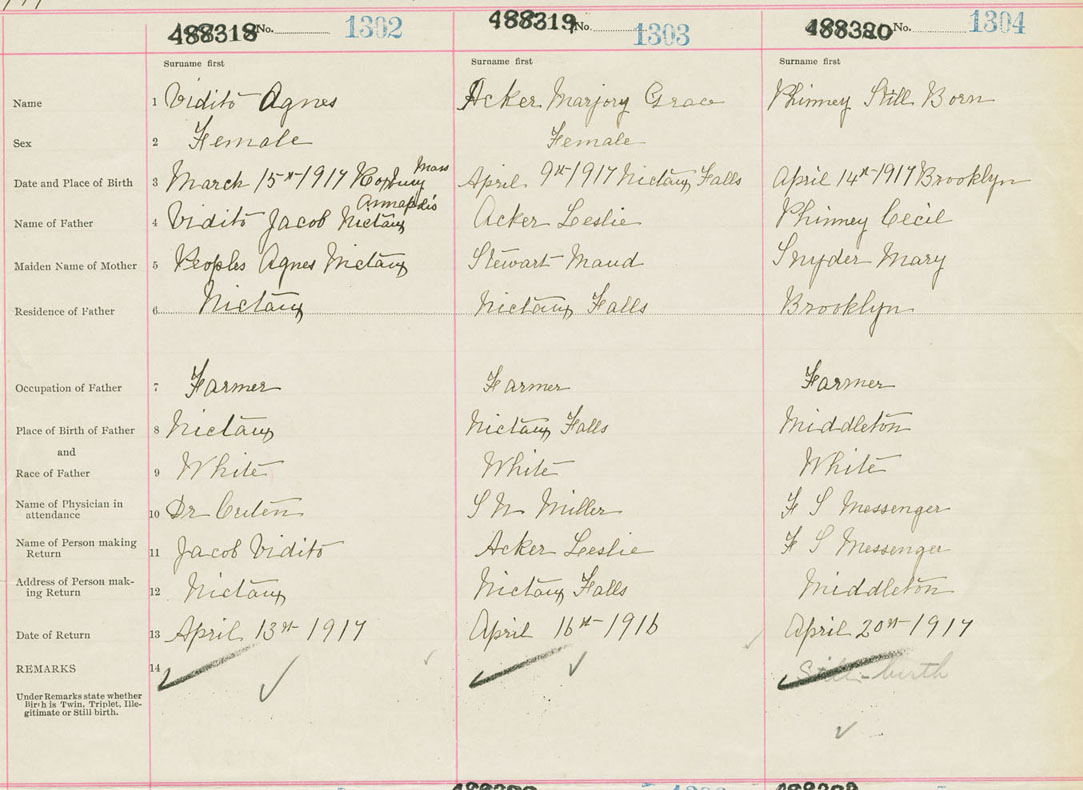 488318 No. 1302 488319 No. 1303 488320 No. 1304
Surname first Surname first Surname first
Name 1 Vidito Agnes Acker Marjory Grace Phinney Still Born
Sex 2 Female Female
Date and Place of Birth 3 March 15th 1917 Roxbury Mass April 9th 1917 Nictaux Falls April 14th 1917 Brooklyn
Annapolis
Name of Father 4 Vidito Jacob Nictaux Acker Leslie Phinney Cecil
Maiden Name of Mother 5 Peoples Agnes Nictaux Stewart Maud Snyder Mary
Residence of Father 6 Nictaux Nictaux Falls Brooklyn
Occupation of Father 7 Farmer Farmer Farmer
Place of Birth of Father 8 Nictaux Nictaux Falls Middleton
and
Race of Father 9 White White White
Name of Physician in
attendance 10 Dr S N Miller F S Messenger
Name of Person making
Return 11 Jacob Vidito Acker Leslie F S Messenger
Address of Person mak-
ing Return 12 Nictaux Nictaux Falls Middleton
Date of Return 13 April 13th 1917 April 16th 1916 April 20th 1917
REMARKS 14 Still-birth
Under Remarks state whether
Birth is Twin, Triplet, Ille-
gitimate or Still birth.